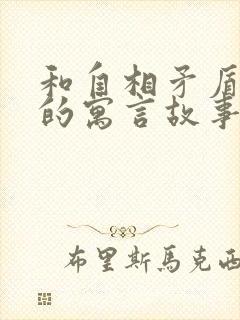 和自相矛盾
的寓言故事
布里斯馬克西